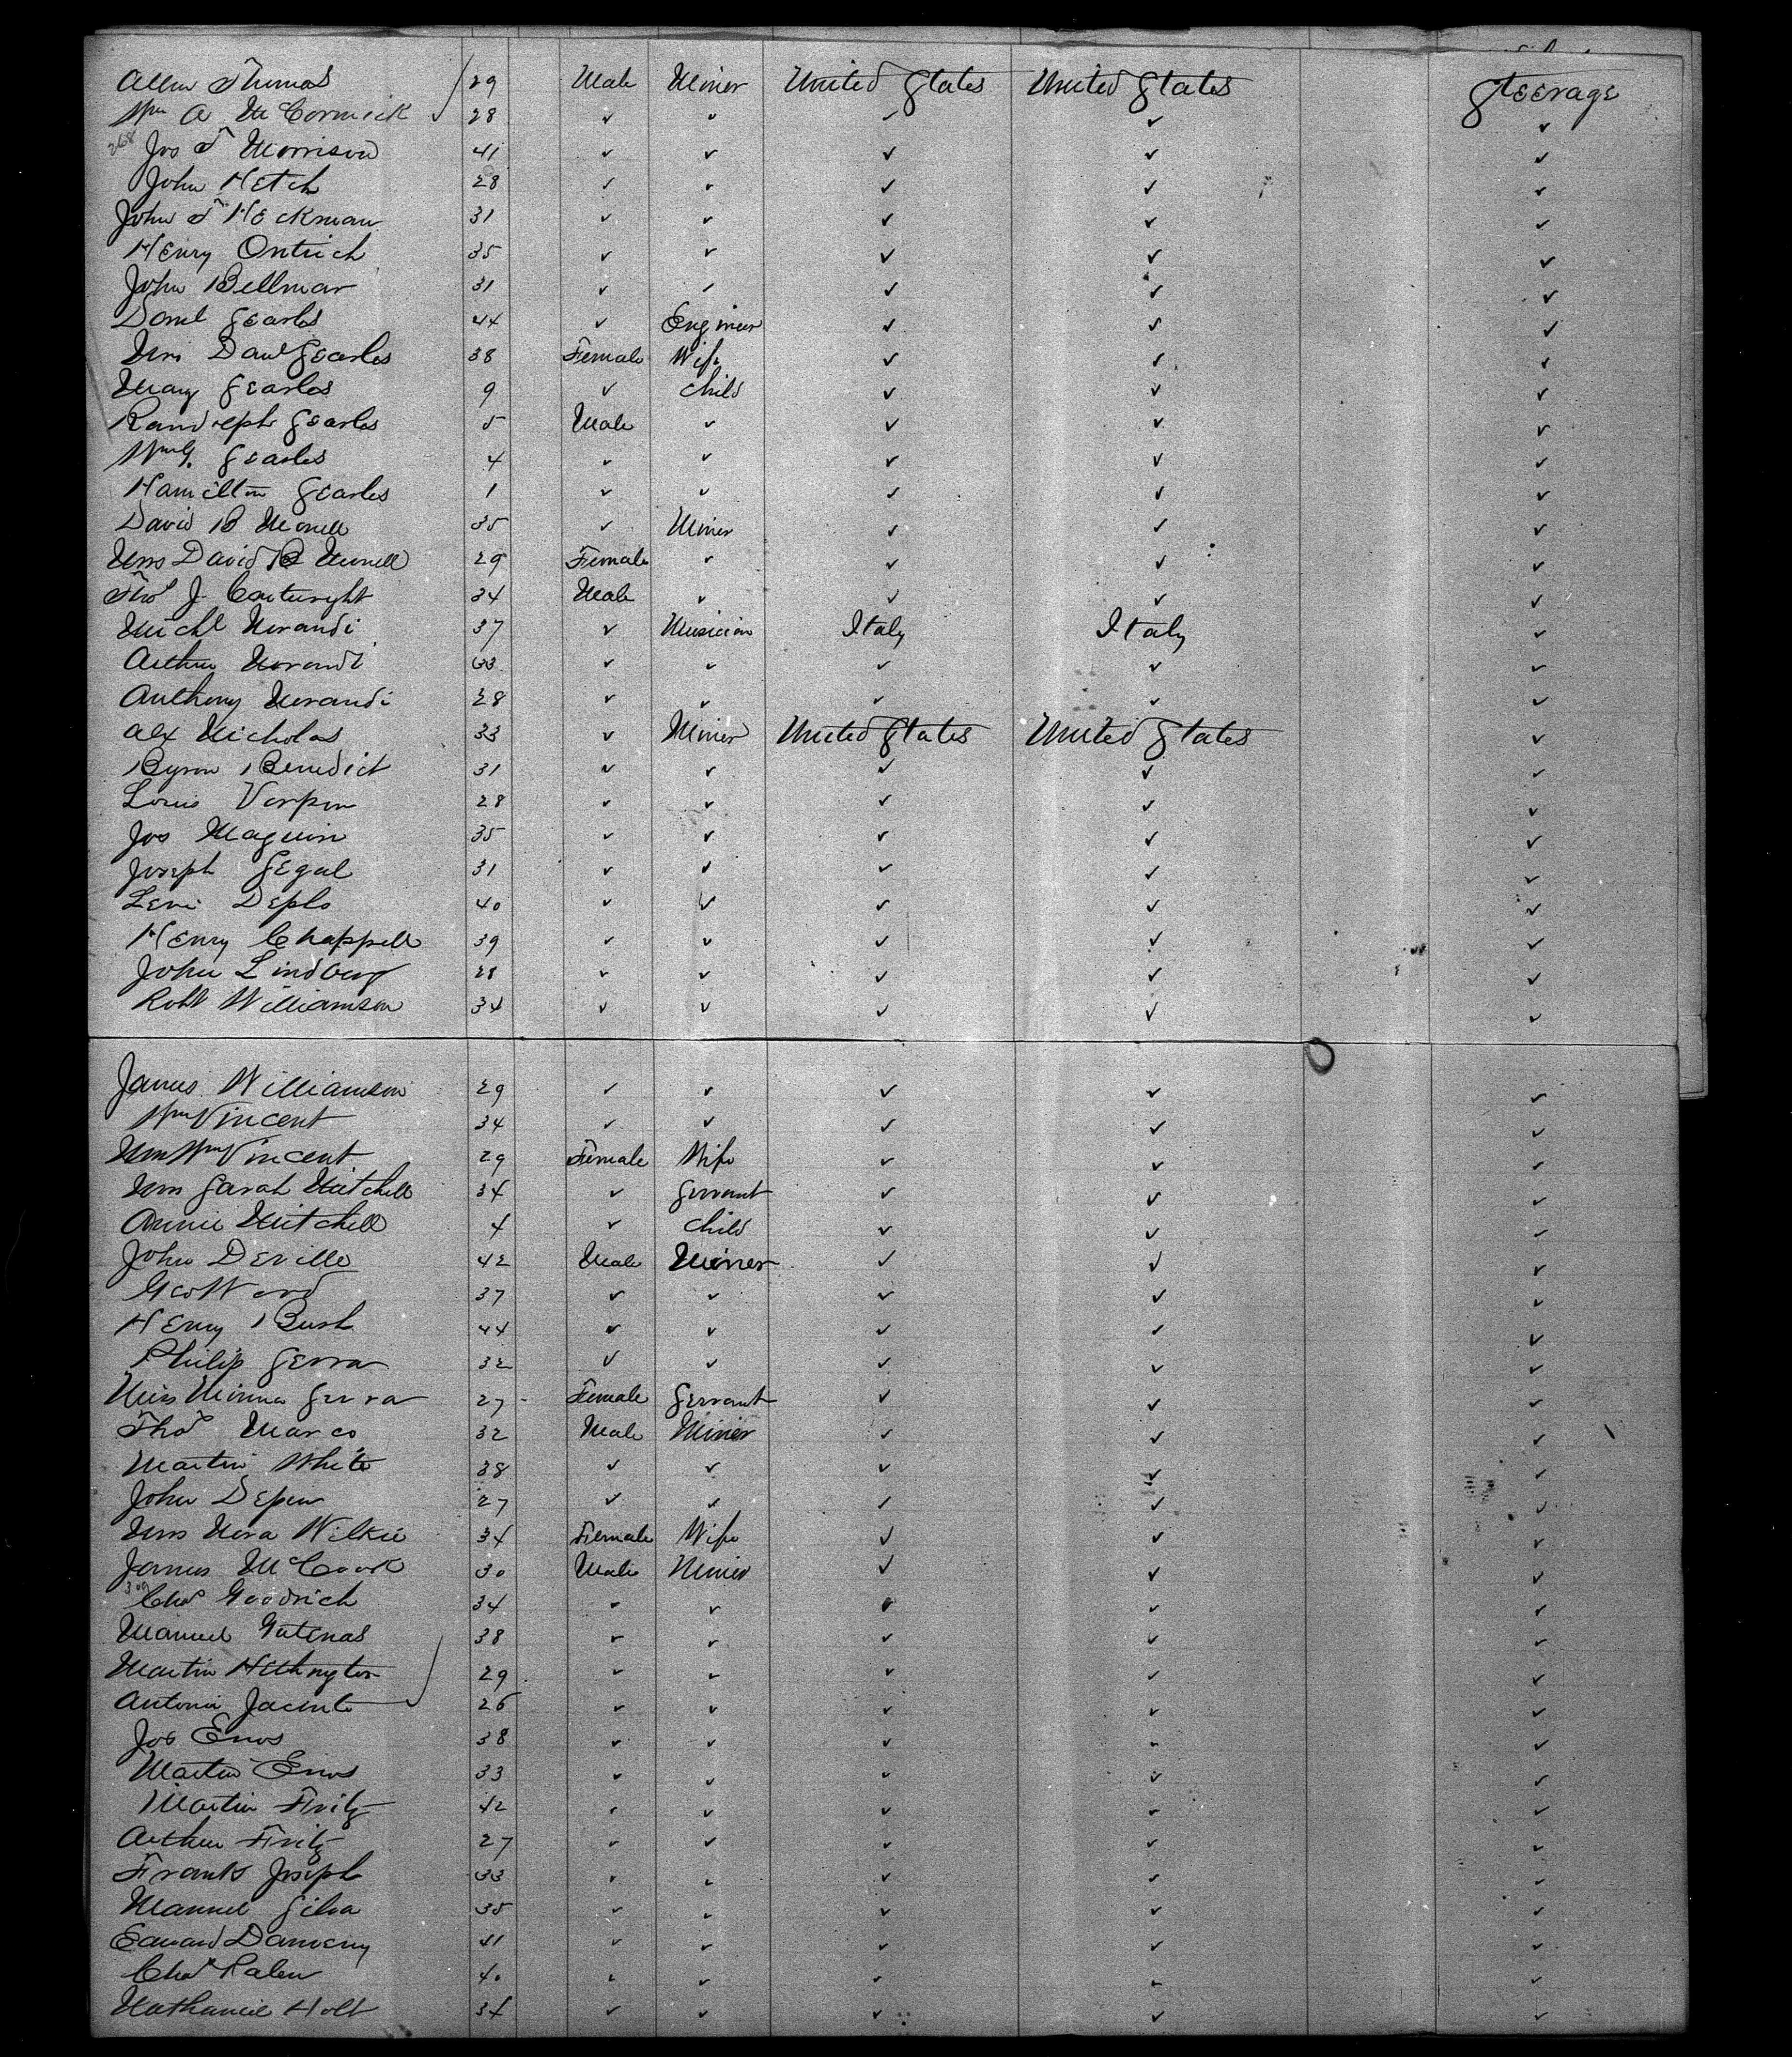 Allen Thomas 29 Male Miner United States United States Steerage
Wm A McCormick 28 ✓ ✓ ✓ ✓ ✓
268 Jos T Morrison 41 ✓ ✓ ✓ ✓ ✓
John Hetch 28 ✓ ✓ ✓ ✓ ✓
John T Heckman 31 ✓ ✓ ✓ ✓ ✓
Henry Ontrich 35 ✓ ✓ ✓ ✓ ✓
John Bellmar 31 ✓ ✓ ✓ ✓ ✓
Danl Searles 44 ✓ Engineer ✓ ✓ ✓
Mrs Danl Searles 38 Female Wife ✓ ✓ ✓
Mary Searles 9 ✓ Child ✓ ✓ ✓
Randolph Searles 5 Male ✓ ✓ ✓ ✓
Wm G. Searles 4 ✓ ✓ ✓ ✓ ✓
Hamilton Searles 1 ✓ ✓ ✓ ✓ ✓
David B 35 ✓ Miner ✓ ✓ ✓
Mrs David B 29 Female ✓ ✓ ✓ ✓
Thos J. Cartwright 34 Male ✓ ✓ ✓ ✓
Michl Morandi 37 ✓ Musician Italy Italy ✓
Arthur Morandi 33 ✓ ✓ ✓ ✓ ✓
Anthony Morandi 28 ✓ ✓ ✓ ✓ ✓
Alex Nicholas 33 ✓ Miner United States United States ✓
Byron Benedict 31 ✓ ✓ ✓ ✓ ✓
Louis 28 ✓ ✓ ✓ ✓ ✓
Jos Maguin 35 ✓ ✓ ✓ ✓ ✓
Joseph Segal 31 ✓ ✓ ✓ ✓ ✓
Levi Deplo 40 ✓ ✓ ✓ ✓ ✓
Henry Chappell 39 ✓ ✓ ✓ ✓ ✓
John Lindberg 28 ✓ ✓ ✓ ✓ ✓
Robt Williamson 34 ✓ ✓ ✓ ✓ ✓
James Williamson 29 ✓ ✓ ✓ ✓ ✓
Wm Vincent 34 ✓ ✓ ✓ ✓ ✓
Mrs Wm Vincent 29 Female Wife ✓ ✓ ✓
Mrs Sarah Mitchell 34 ✓ Servant ✓ ✓ ✓
Annie Mitchell 4 ✓ Child ✓ ✓ ✓
John Deville 42 Male Miner ✓ ✓ ✓
Geo Ward 37 ✓ ✓ ✓ ✓ ✓
Henry Bush 44 ✓ ✓ ✓ ✓ ✓
Philip Serra 32 ✓ ✓ ✓ ✓ ✓
Miss Minna Serra 27 Female Servant ✓ ✓ ✓
Thos Marco 32 Male Miner ✓ ✓ ✓
Martin White 38 ✓ ✓ ✓ ✓ ✓
John Depew 27 ✓ ✓ ✓ ✓ ✓
Mrs Nora Wilkie 34 Female Wife ✓ ✓ ✓
James McCook 30 Male Miner ✓ ✓ ✓
Chas Goodrich 34 ✓ ✓ ✓ ✓ ✓
Manuel 38 ✓ ✓ ✓ ✓ ✓
Martin 29 ✓ ✓ ✓ ✓ ✓
Antoni Jacinto 26 ✓ ✓ ✓ ✓ ✓
Jos Enos 38 ✓ ✓ ✓ ✓ ✓
Martin Enos 33 ✓ ✓ ✓ ✓ ✓
Martin Fritz 42 ✓ ✓ ✓ ✓ ✓
Arthur Fritz 27 ✓ ✓ ✓ ✓ ✓
Frank Joseph 33 ✓ ✓ ✓ ✓ ✓
Manuel Silva 35 ✓ ✓ ✓ ✓ ✓
Edward 41 ✓ ✓ ✓ ✓ ✓
Chas 40 ✓ ✓ ✓ ✓ ✓
Nathaniel Holt 34 ✓ ✓ ✓ ✓ ✓